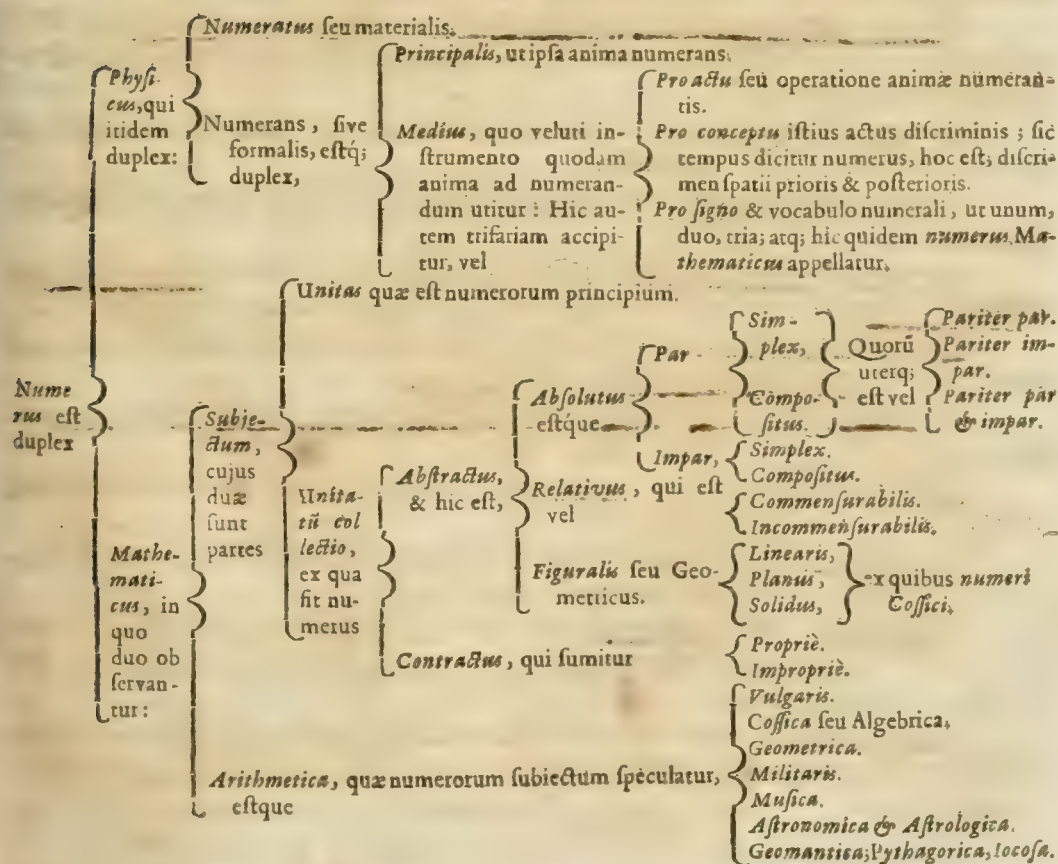 Nume
rus est
duplex
Physi-
cus, qui
itidem
duplex:
Numeratus seu materialis.
Numerans, sive
formalis, estq;
duplex,
Principalis, ut ipsa anima numerans.
Medius, quo veluti in-
strumento quodam
anima ad numeran-
dum utitur: Hic au-
tem trifariam accipi-
tur, vel
Pro actu seu operatione animæ numeran-
tis.
Pro conceptu istius actus discriminis; sic
tempus dicitur numerus, hoc est, discri-
men spatii prioris & posterioris.
Pro signo & vocabulo numerali, ut unum,
duo, tria; atq; hic quidem numerus Ma-
thematicus appellatur.
Mathe-
mati-
cus, in
quo
duo ob
servan-
tur:
Subje-
ctum,
cujus
duæ
sunt
partes
Unitas quæ est numerorum principium.
Unita-
tū col
lectio,
ex qua
fit nu-
merus
Abstractus,
& hic est,
Absolutus
estque
Par
Sim-
plex,
Compo-
situs.
Quorū
uterq;
est vel
Pariter par.
Pariter im-
par.
Pariter par
& impar.
Impar,
Simplex.
Compositus.
Relativus, qui est
vel
Commensurabilis.
Incommensurabilis.
Figuralis seu Geo-
metricus.
Linearis,
Planus,
Solidus,
ex quibus numeri
Cossici.
Contractus, qui sumitur
Propriè.
Impropriè.
Arithmetica, quæ numerorum subiectum speculatur,
estque
Vulgaris.
Cossica seu Algebrica.
Geometrica.
Militaris.
Musica.
Astronomica & Astrologica.
Geomantica; Pythagorica, Iocosa.